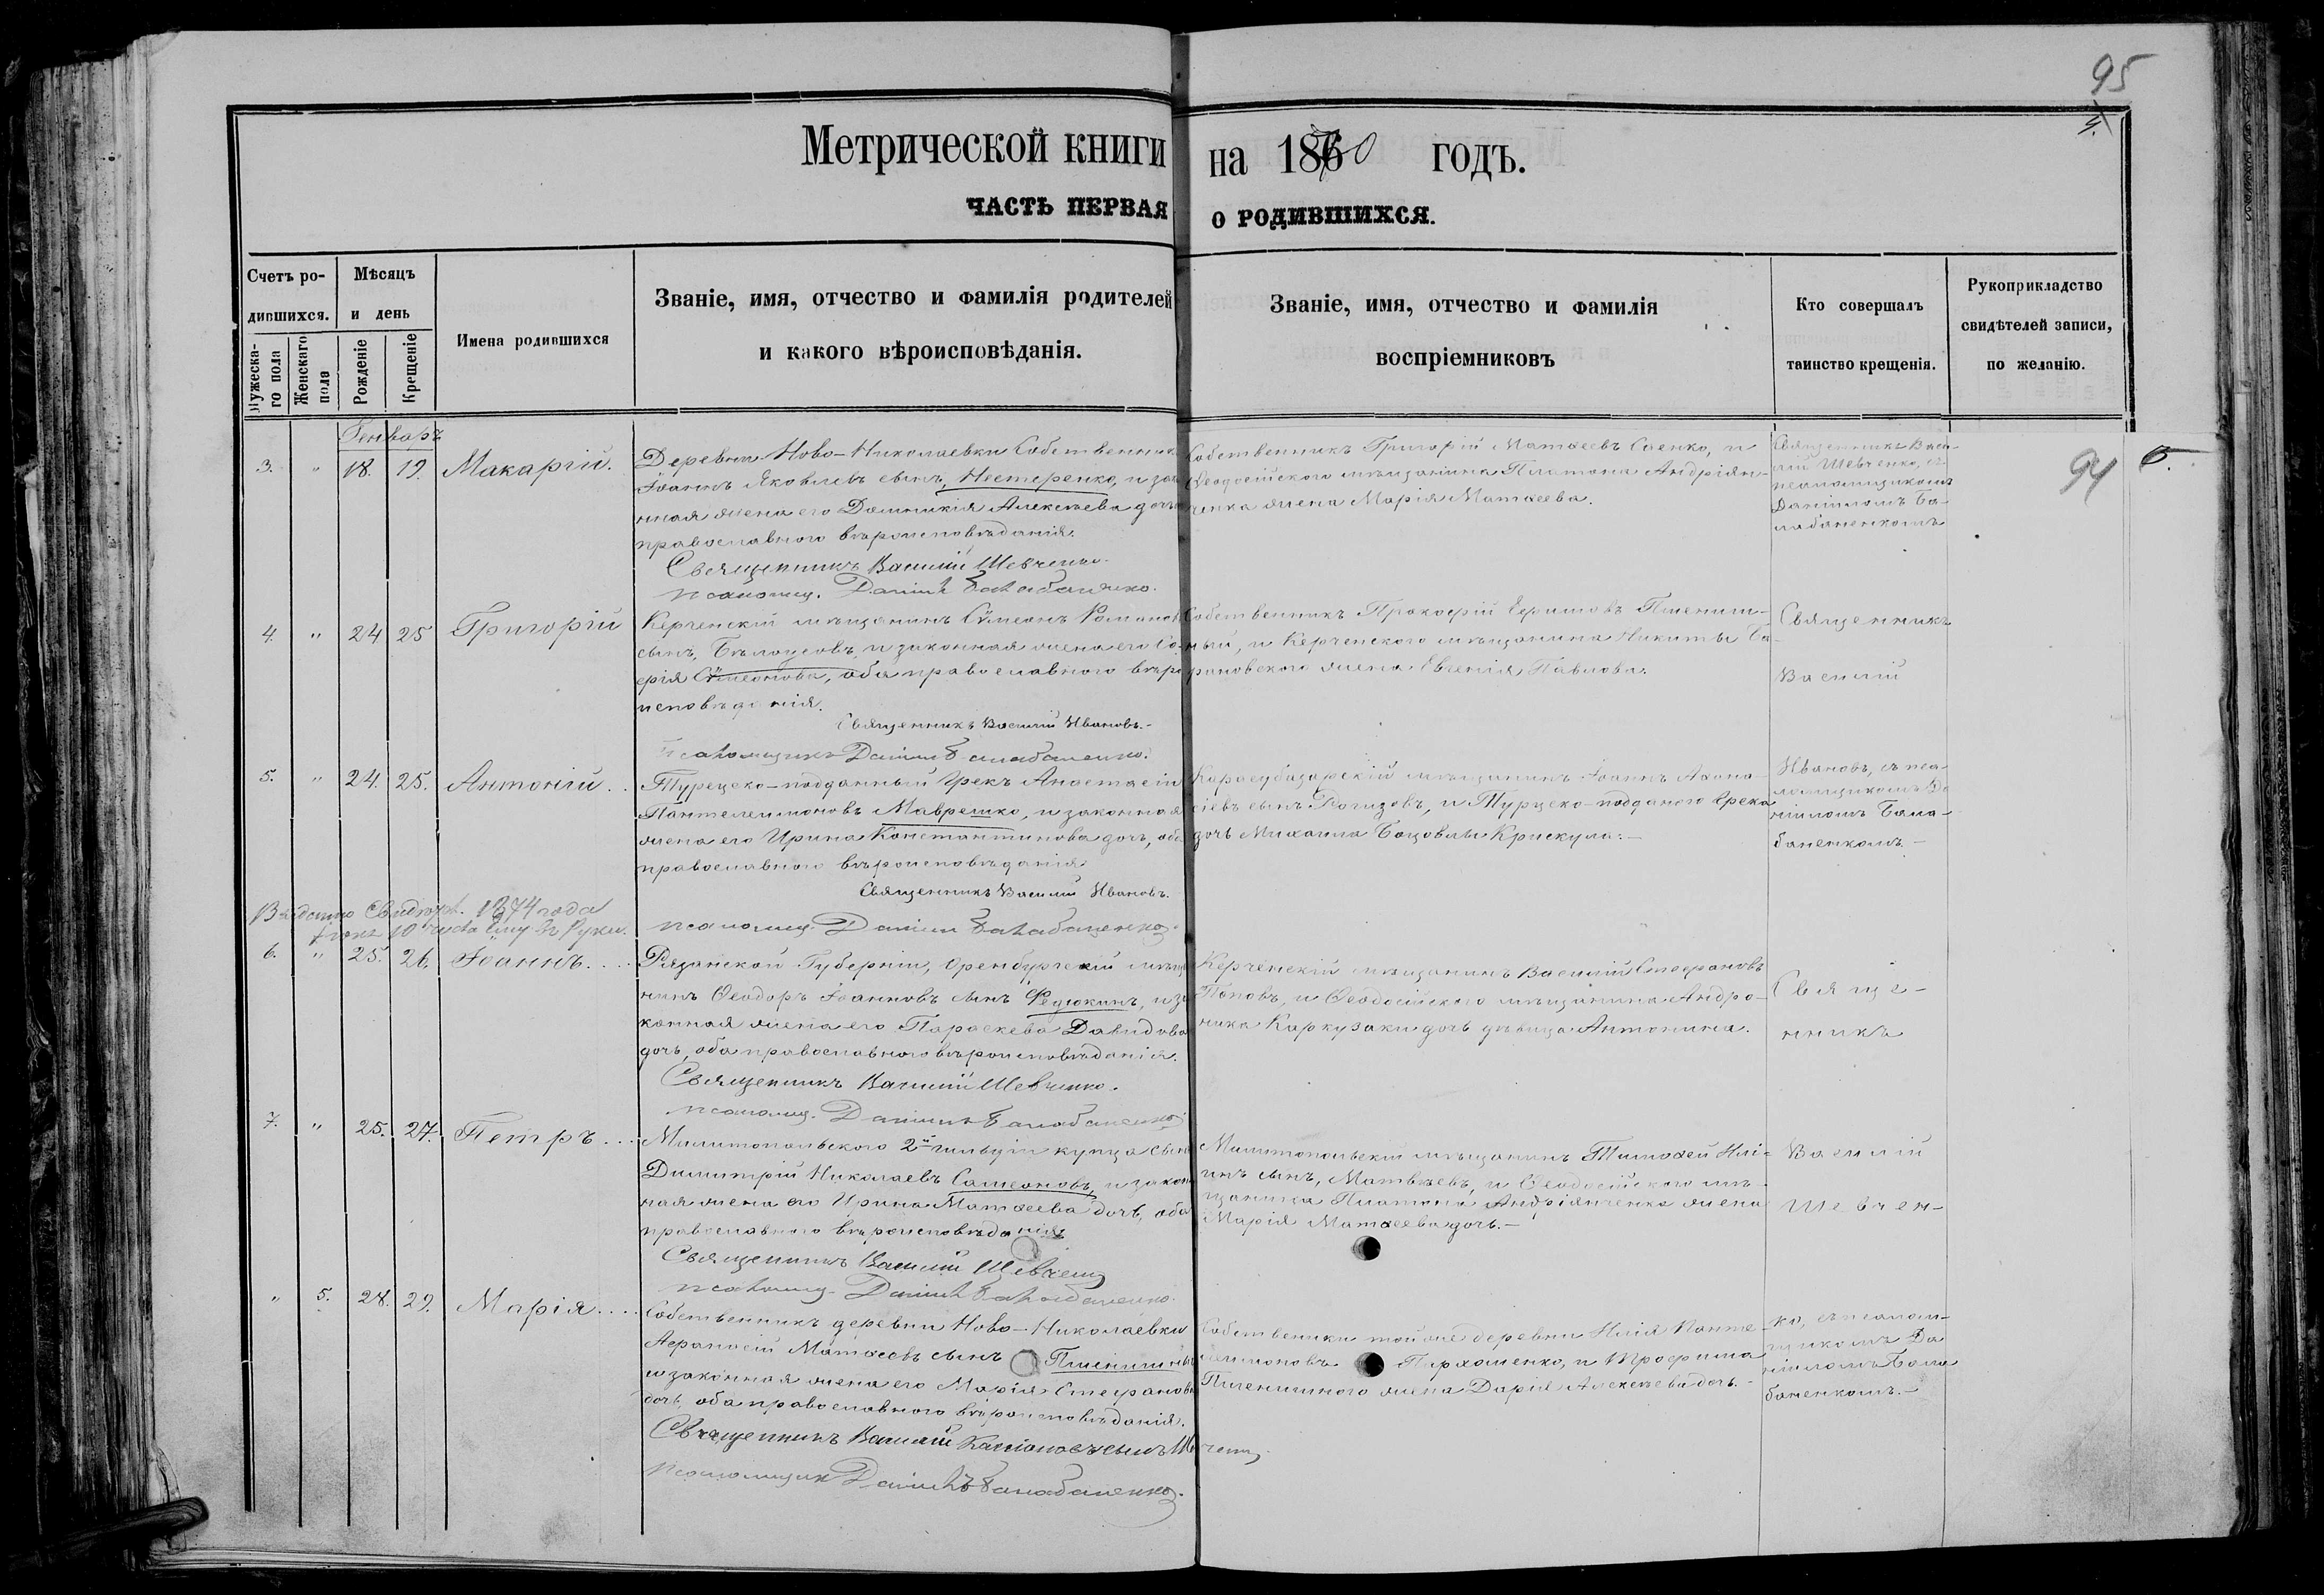 95
4.
Метрической книги на 1870 годъ.
ЧАСТЬ ПЕРВАЯ О РОДИВШИХСЯ.
Счетъ ро-
дившихся.
Мужеска-
го пола
Женскаго
пола
Мѣсяцъ
и день
Рожденіе
Крещеніе
Имена родившихся
Званіе, имя, отчество и фамилія родителей
и какого вѣроисповѣданія.
Званіе, имя, отчество и фамилія
воспріемниковъ
Кто совершалъ
таинство крещенія.
Рукоприкладство
свидѣтелей записи,
по желанію.
Генварь
3. " 18. 19. Макарій.
Деревни Ново-Николаевки Собственникъ
Іоаннъ Яковлевъ сынъ, Нестеренко, и зако
нная жена его Домникія Алексѣева дочь
православнаго вѣроисповѣданія.
Священникъ Василій Шевченко.
псаломщ. Даніилъ Балабаненко.
Собственникъ Григорій Матѳеевъ Саенко, и
Ѳеодосійского мѣщанина Платона Андріян-
ченка жена Марія Матѳеева.
Священникъ Васи-
лій Шевченко, съ
псаломщикомъ
Даніиломъ Ба-
лабаненкомъ
94
4. " 24 25 Григорій
Керченскій мѣщанинъ Сѵмеонъ Романовъ
сынъ, Бѣлоусовъ, и законная жена его Со-
фія Сѵмеонова, оба православнаго вѣро
исповѣданія.
Священникъ Василій Ивановъ.-
Псаломщикъ Даніилъ Балабаненко.
Собственникъ Прокофій Ефимовъ Пшенич-
ный, и Керченского мѣщанина Никиты Ба-
рановского жена Евгенія Павлова.
Священникъ
Василій
5. " 24. 25. Антоній..
Турецско-подданный Грекъ Анастасій
Пантелеимоновъ Маврешко, и законная
жена его Ирина Константинова дочь, оба
православнаго вѣроисповѣданія
Священникъ Василій Ивановъ.
псаломщ. Даніилъ Балабаненко.
Карасубазарскій мѣщанинъ Іоаннъ Аѳана-
сіевъ сынъ Рогизовъ, и Турцско-подданого Грека
дочь Михаила Крискула.-
Ивановъ, съ пса-
ломщикомъ Да
ніиломъ Бала-
баненкомъ.-
Выдано Свидѣт. 1874 года
10 числа ему въ руки.
6. " 25. 26. Іоаннъ....
Рязанской Губерніи, Оренбургскій мѣща
нинъ Ѳеодоръ Іоанновъ сынъ Федюкинъ, и за
конная жена его Параскева Давидова
дочь, оба православнаго вѣроисповѣданія.
Священникъ Василій Шевченко.
псаломщ. Даніилъ Балабаненко
Керченскій мѣщанинъ Василій Стефановъ
Поповъ, и Ѳеодосійского мѣщанина Андро-
ника Каркузаки дочь дѣвица Антонина.
Свяще-
нникъ
7. " 25. 27. Петръ...
Милитопольского 2й гильдіи купца сынъ
Димитрій Николаевъ Самсоновъ, и закон
ная жена его Ирина Матѳеева дочь, оба
православнаго вѣроисповѣданія
Священникъ Василій Шевченко
псаломщ. Даніилъ Балабаненко.
Милитопольскій мѣщанинъ Тимоѳей Илі-
инъ сынъ, Матвѣевъ, и Ѳеодосійского мѣ-
щанина Платона Андріянченка жена
Марія Матѳеева дочь.-
Василій
Шевчен-
" 5. 28. 29. Марія....
Собственникъ деревни Ново-Николаевки
Аѳанасій Матѳеевъ сынъ Пшеничный
и законная жена его Марія Стефанова
дочь, оба православнаго вѣроисповѣданія.
Священникъ Василій Шевченко
Псаломщик Даніилъ Балабаненко.
Собственики тойже деревни Илія Панте-
леимоновъ Пархоменко, и Трофима
Пшеничного жена Дарія Алексѣева дочь.-
ко, съ псалом-
щикомъ Да
ніиломъ Бала
баненкомъ.-